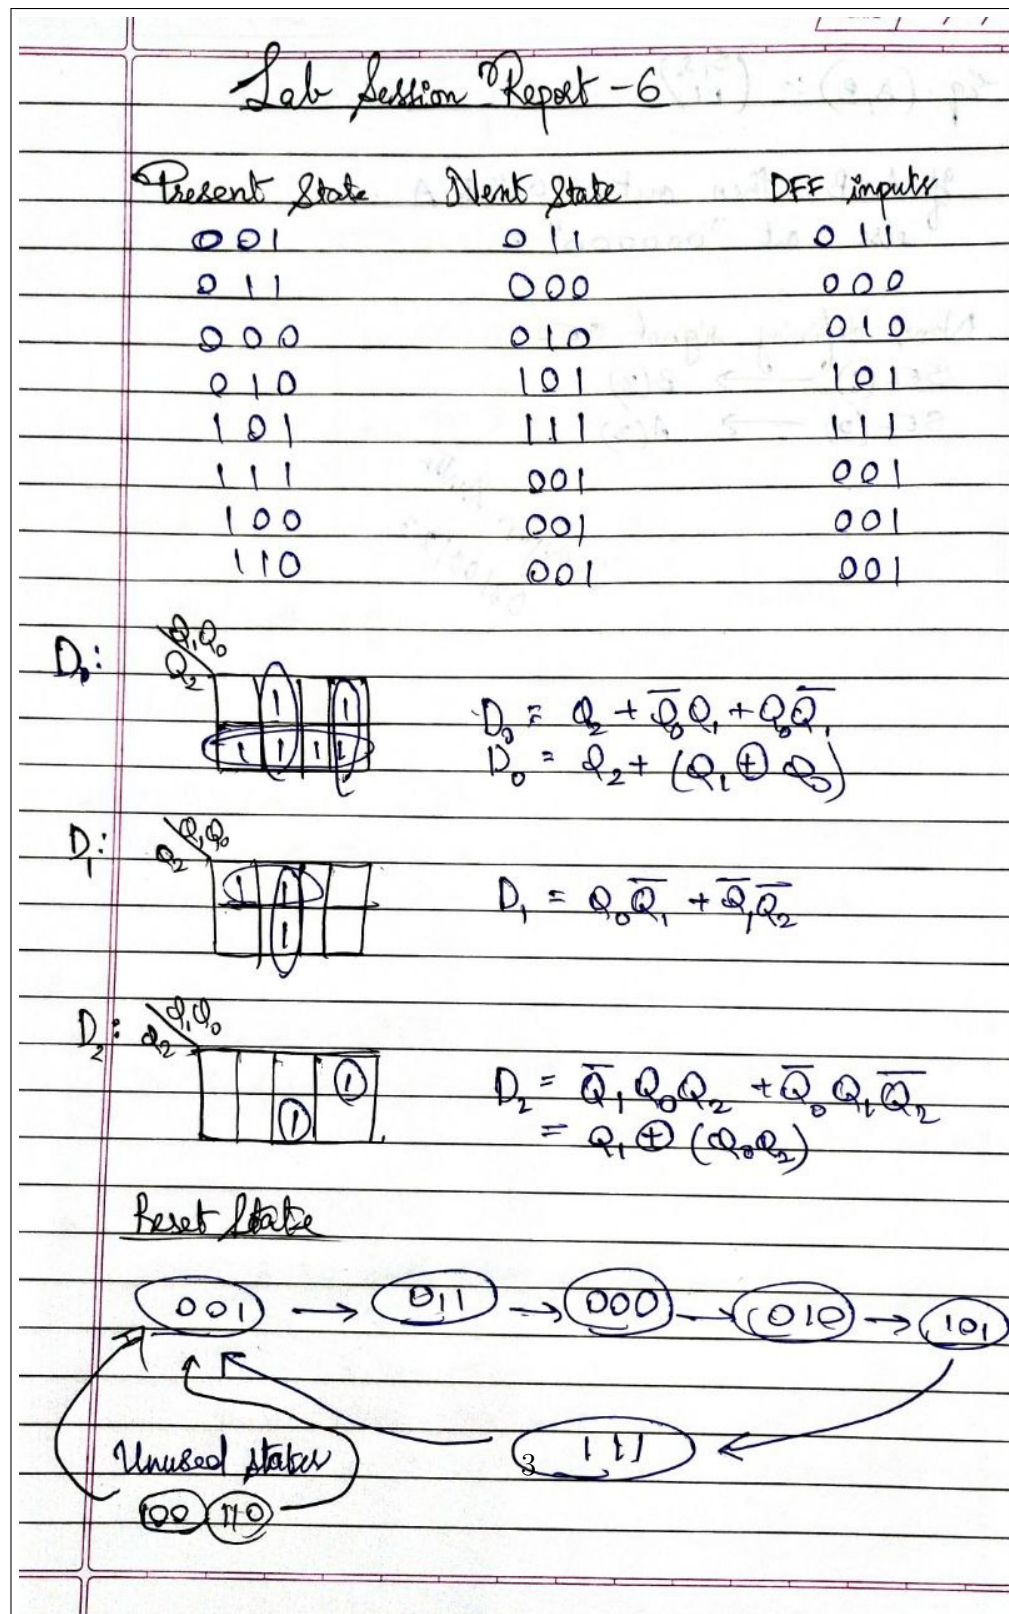 Lab Session Report - 6
Present State Next State DFF inputs
001 011 011
011 000 000
000 010 010
010 101 101
101 111 111
111 001 001
100 001 001
110 001 001
D₀: Q₁Q₀
Q₂
1 1
1 1 1 1
D₀ = Q₂ + Q̅₀Q₁ + Q₀Q̅₁
D₀ = Q₂ + (Q₁ ⊕ Q₀)
D₁: Q₁Q₀
Q₂
1 1
1
D₁ = Q₀Q̅₁ + Q̅₁Q̅₂
D₂: Q₁Q₀
Q₂
1
1
D₂ = Q̅₁Q₀Q₂ + Q̅₀Q₁Q̅₂
= Q₁ ⊕ (Q₀Q₂)
Reset State
001 → 011 → 000 → 010 → 101
111
3
Unused states
100 110